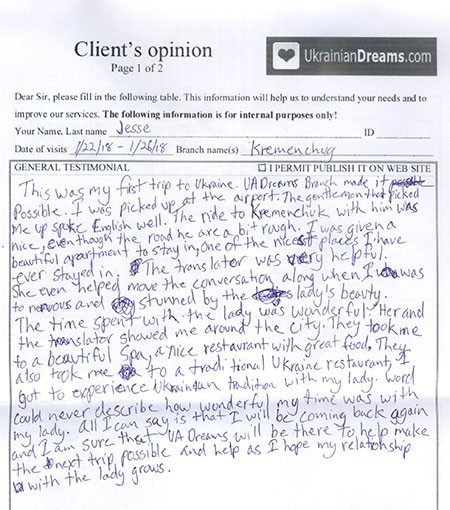 Client's opinion
Page 1 of 2
UkrainianDreams.com
Dear Sir, please fill in the following table. This information will help us to understand your needs and to
improve our services. The following information is for internal purposes only!
Your Name, Last name Jesse ID
Date of visits 1/22/18 - 1/26/18 Branch name(s) Kremenchug
GENERAL TESTIMONIAL I PERMIT PUBLISH IT ON WEB SITE
This was my first trip to Ukraine. UA Dreams Branch made it
Possible. I was picked up at the airport. The gentlemon that picked
me up spoke English well. The ride to Kremenchuk with him was
nice, even though the road he are a bit rough. I was given a
beautiful apartment to stay in, one of the nicest places I have
ever stayed in. The translator was very helpful.
She even helped move the conversation along when I was
to nervous and stunned by the lady's beauty.
The time spent with the lady was wonderful. Her and
the translator showed me around the city. They took me
to a beautiful spa, a nice restaurant with great food, They
also took me to a traditional Ukraine restaurant, I
got to experience Ukrainian tradition with my lady. Word
could never describe how wonderful my time was with
my lady. All I can say is that I will be coming back again
and I am sure that UA Dreams will be there to help make
the next trip possible and help as I hope my relationship
with the lady grows.